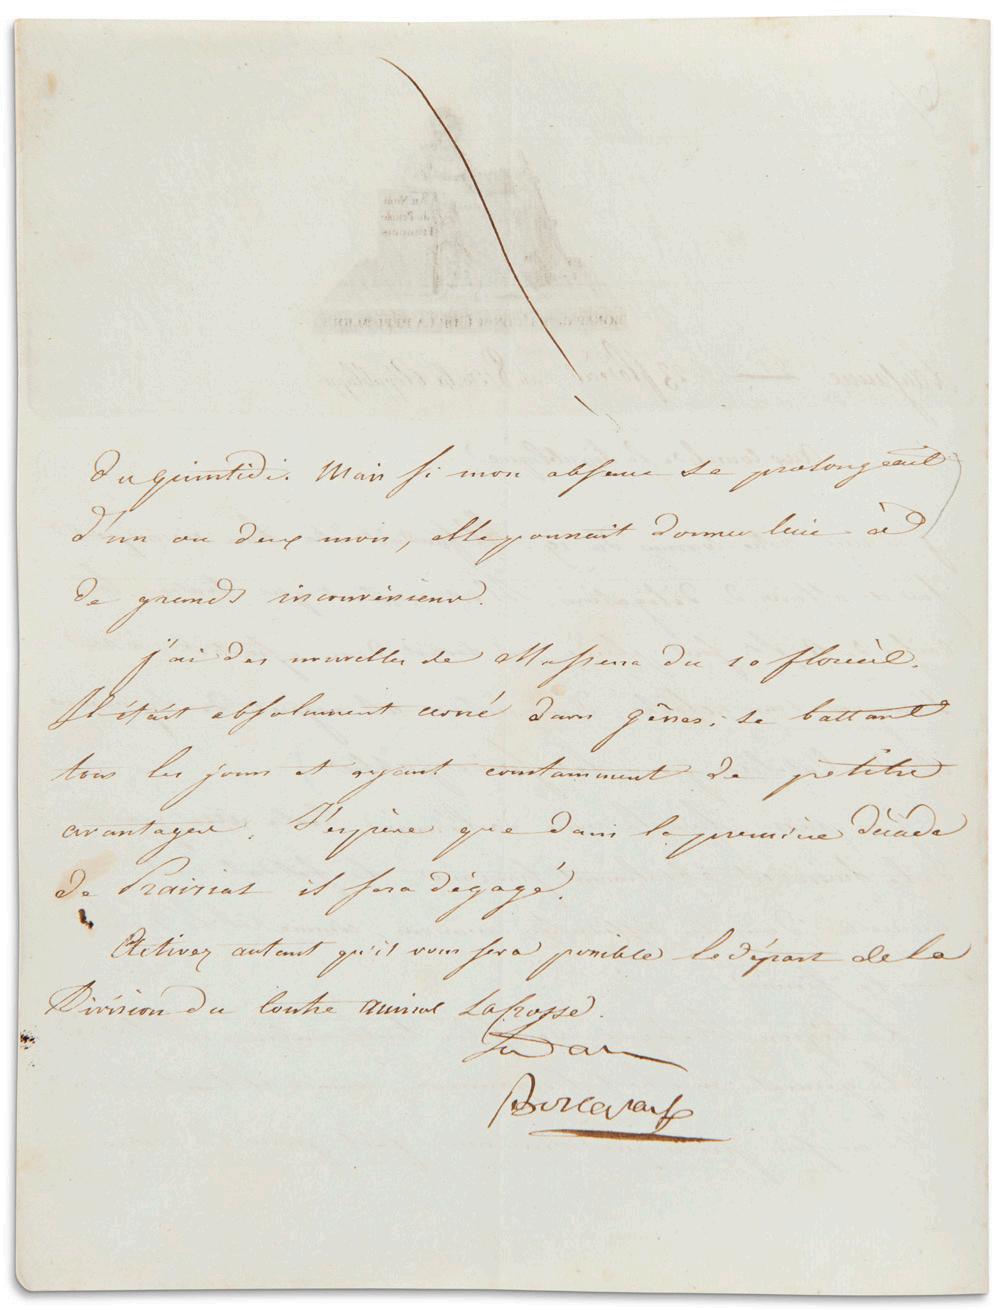 du quintidi. Mais si mon absence se prolongeait
d'un ou deux mois, elle pourrait donner lieu à
de grands inconvéniens.
j'ai des nouvelles de Massena du 10 floréal.
Il était absolument cerné dans gênes; se battant
tous les jours et ayant constamment de petits
avantages. J'espère que dans la première décade
de Prairial il sera dégagé.
Activez autant qu'il vous sera possible le départ de la
Division du Contre amiral LaCrosse.
Bonaparte